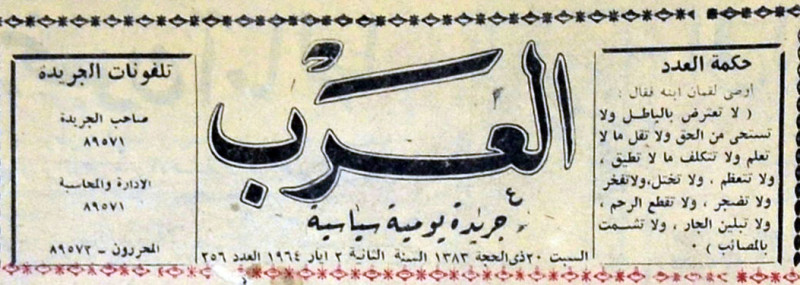 حكمة العدد
أوصى لقمان ابنه فقال :
( لا تعترض بالباطل ولا
تستحى من الحق ولا تقل ما لا
تعلم ولا تتكلف ما لا تطيق ،
ولا تتعظم ، ولا تختل، ولاتفخر
ولا تضجر ، ولا تقطع الرحم ،
ولا تبلين الجار ، ولا تشمت
بالمصائب ) ٠
العرب
جريدة يومية سياسية
السبت ٢٠ ذى الحجة ١٣٨٣ السنة الثانية ٢ ايار ١٩٦٤ العدد ٢٥٦
تلفونات الجريدة
صاحب الجريدة
٨٩٥٧١
الادارة والمحاسبة
٨٩٥٧١
المحررون - ٨٩٥٧٢